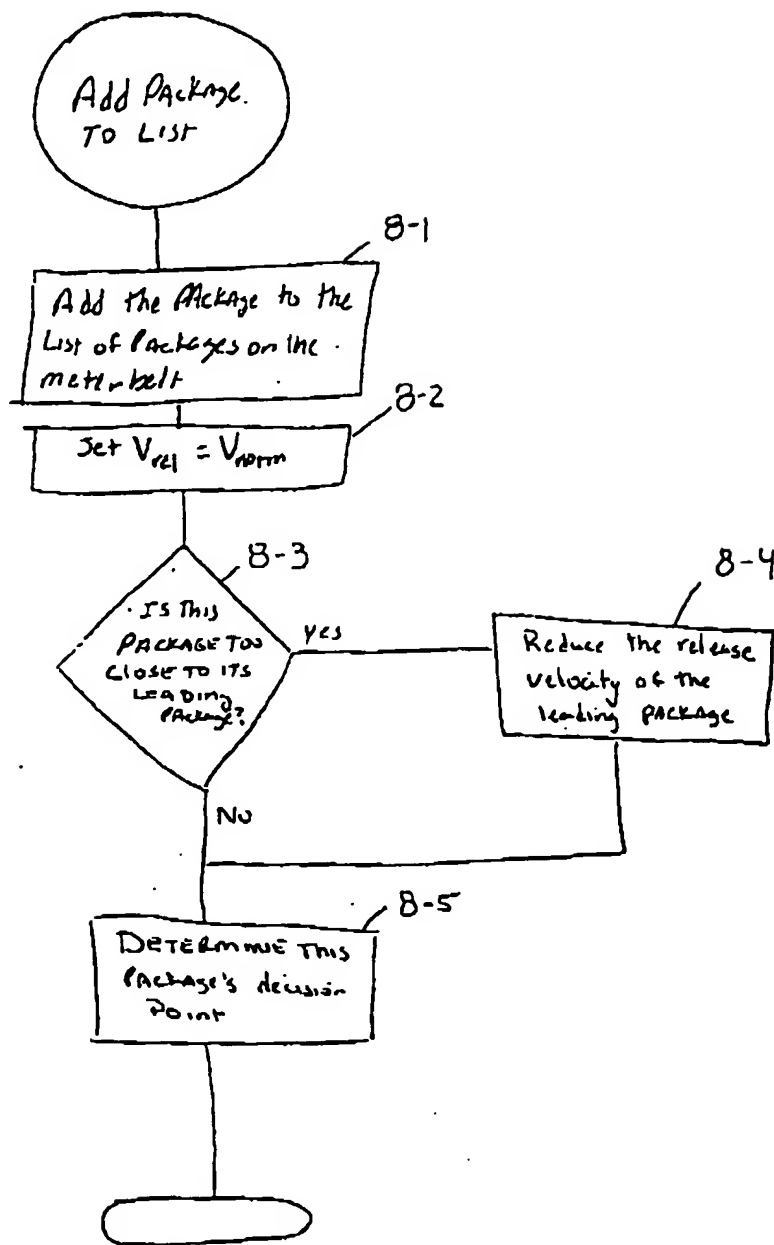 Add Package.
TO LIST
8-1
Add the Package to the
List of Packages on the
meter belt
8-2
Set Vrel = Vnorm
8-3
IS This
PACKAGE TOO
CLOSE TO ITS
LEADING
PACKAGE?
yes
8-4
Reduce the release
velocity of the
leading PACKAGE
No
8-5
DETERMINE THIS
PACKAGE'S decision
Point